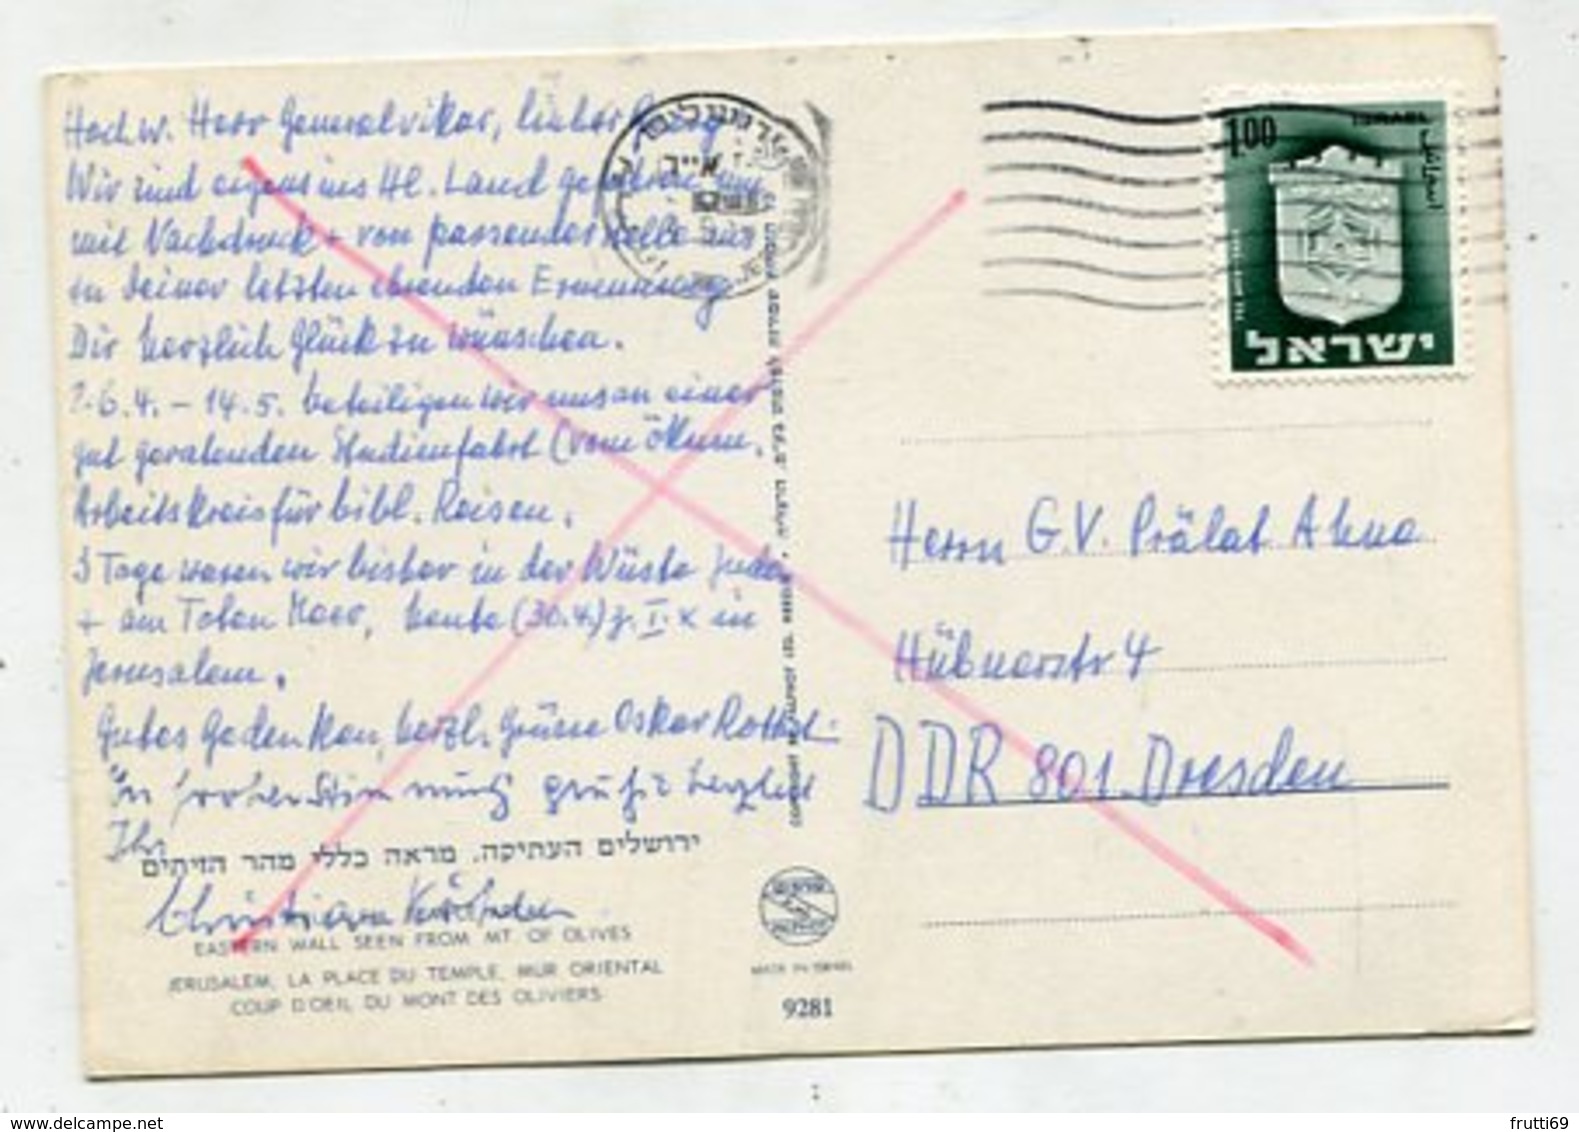 Hochw. Herr Generalvikar, lieber
Wir sind eigens ins Hl. Land gefahren um
mit Nachdruck + von passender Stelle aus
zu Deiner letzten ehrenden Ernennung
Dir herzlich Glück zu wünschen.
6.4. - 14.5. beteiligen wir uns an einer
gut geratenden Studienfahrt (vom Ökum.
Arbeitskreis für bibl. Reisen.
3 Tage waren wir bisher in der Wüste Juda
+ am Toten Meer, heute (30.4.) z. I. x in
Jerusalem.
Gutes Gedenken, herzl. Grüsse Oskar
grüßt herzlich
Ihr
Christiana
ירושלים העתיקה. מראה כללי מהר הזיתים
EASTERN WALL SEEN FROM MT. OF OLIVES
JERUSALEM, LA PLACE DU TEMPLE, MUR ORIENTAL
COUP D'OEIL DU MONT DES OLIVIERS
COPYRIGHT BY PALPHOT LTD. HERZLIA
MADE IN ISRAEL
9281
ירושלים
1.00
ISRAEL
ישראל
Herrn G.V. Prälat
Hübnerstr 4
DDR 801 Dresden
www.delcampe.net
frutti69